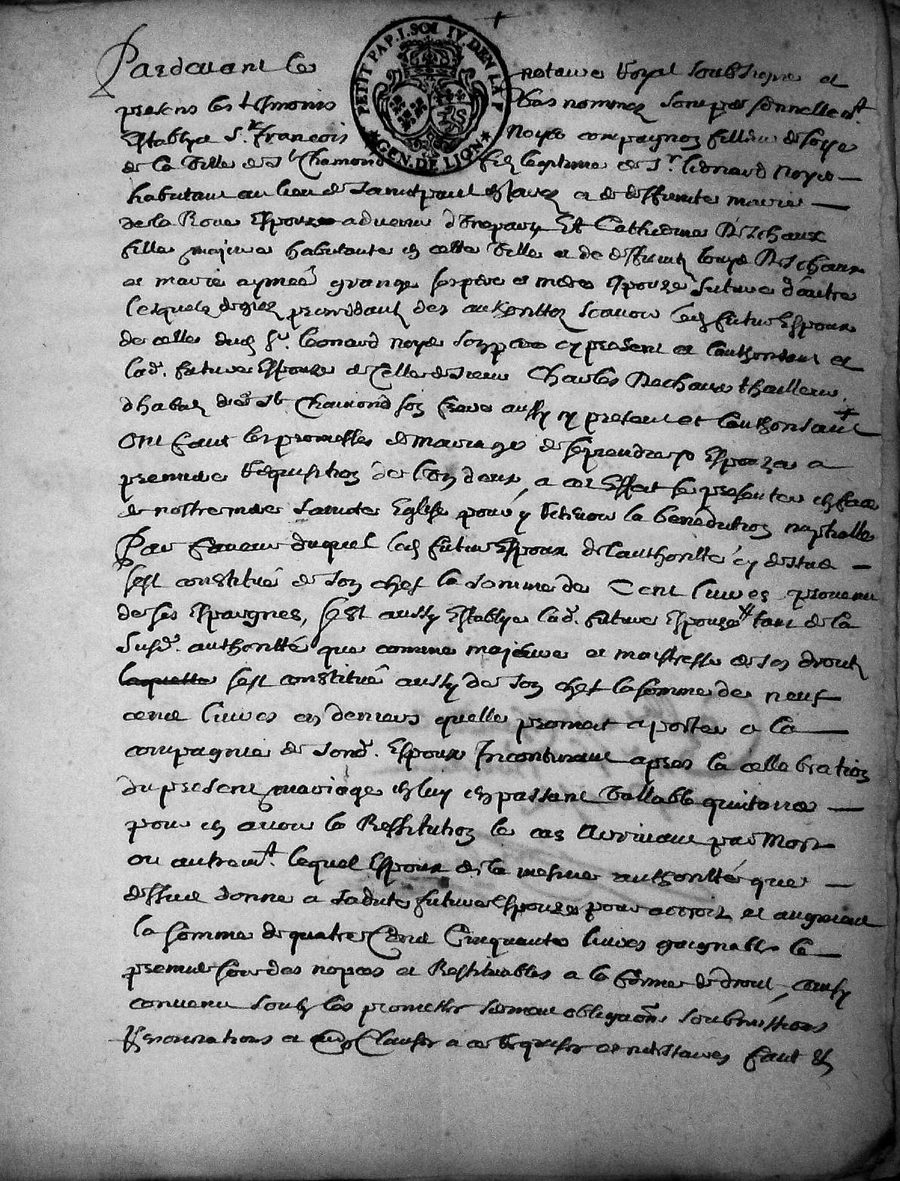 PETIT PAP. 1. SOL IV. DEN. LA F.
GEN. DE LION
Pardevant le notaire Royal soubsigne et
presens les tesmoins bas nommez sont personnellemt
Establys Sr. Francois Noyé compagnon filleur de soye
de la Ville de St. Chamond fils legitime de Sr. Leonard Noyé
habitant au lieu de Sainct paul en Jarez et de deffunte marie
de la Roue Espoux advenir d'Une part, Et Catherine Dechaux
fille majeure habitante en cette Ville et de deffunt Louys Dechaux
et marie aymée grange ses pere et mere Espouze future d'autre
Lesquels de gré procedant des authorittez scavoir led. futur Espoux
de celles dud. Sr. Leonard noyé son pere cy present et lauthorisant et
lad. future Espouze de Celle de sieur Charles Dechaux thailleur
dhabits dud. St. Chamond son frere aussy cy present et lauthorisant
Ont fait les promesses de mariage de se prendre pr Espouze a
premiere Requisition de lun deux, a cet Effait se presenter en face
de nostre mere Saincte Eglise pour y Recevoir la benediction nuptialle
Par faveur duquel led. futur Espoux de lauthoritté cy dessus
sest constitué de son chef la somme de Cent livres provenu
de ses Espargnes, sest aussy Establye lad. future Espouze tant de la
susd. authoritté que comme majeure et maistresse de ses droits
laquelle sest constitué aussy de son chef la somme de neuf
cent livres en deniers quelle promet aporter a la
compagnie de sond. Espoux Incontinant apres la cellebration
du present mariage en luy en passant Vallable quittance
pour en avoir la Restitution le cas arrivant par Mort
ou autremt. lequel Espoux de la mesme authoritté que
dessus donne a sadite future Espouze pour accroit et augment
la somme de quatre Cent Cinquante livres gaignable le
premier jour des nopces et Restituables a la forme de droit, ainsy
convenu soubs les promesses serment obligaons. soubmissions
Renonciations et aues Clauses a ce Requises et necessaires fait et